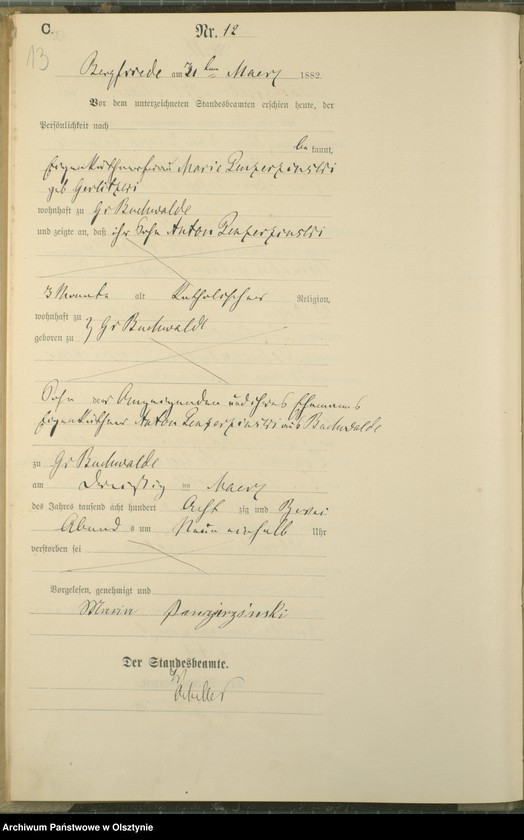 C.
Nr. 12
13
Bergfriede am 31ten Maerz 1882.
Vor dem unterzeichneten Standesbeamten erschien heute, der
Persönlichkeit nach
be kannt,
Eigenkäthnerfrau Marie
geb
wohnhaft zu Gr Buchwalde
und zeigte an, daß ihr Sohn Anton
3 Monate alt katholischer Religion,
wohnhaft zu
geboren zu } Gr Buchwalde
Sohn der Anzeigenden und ihres Ehemanns
Eigenkäthner Anton aus Buchwalde
zu Gr Buchwalde
am Dreissig ten Maerz
des Jahres tausend acht hundert Acht zig und Zwei
Abend s um Neun einhalb Uhr
verstorben sei
Vorgelesen, genehmigt und
Maria Panzerzinski
Der Standesbeamte.
Archiwum Państwowe w Olsztynie